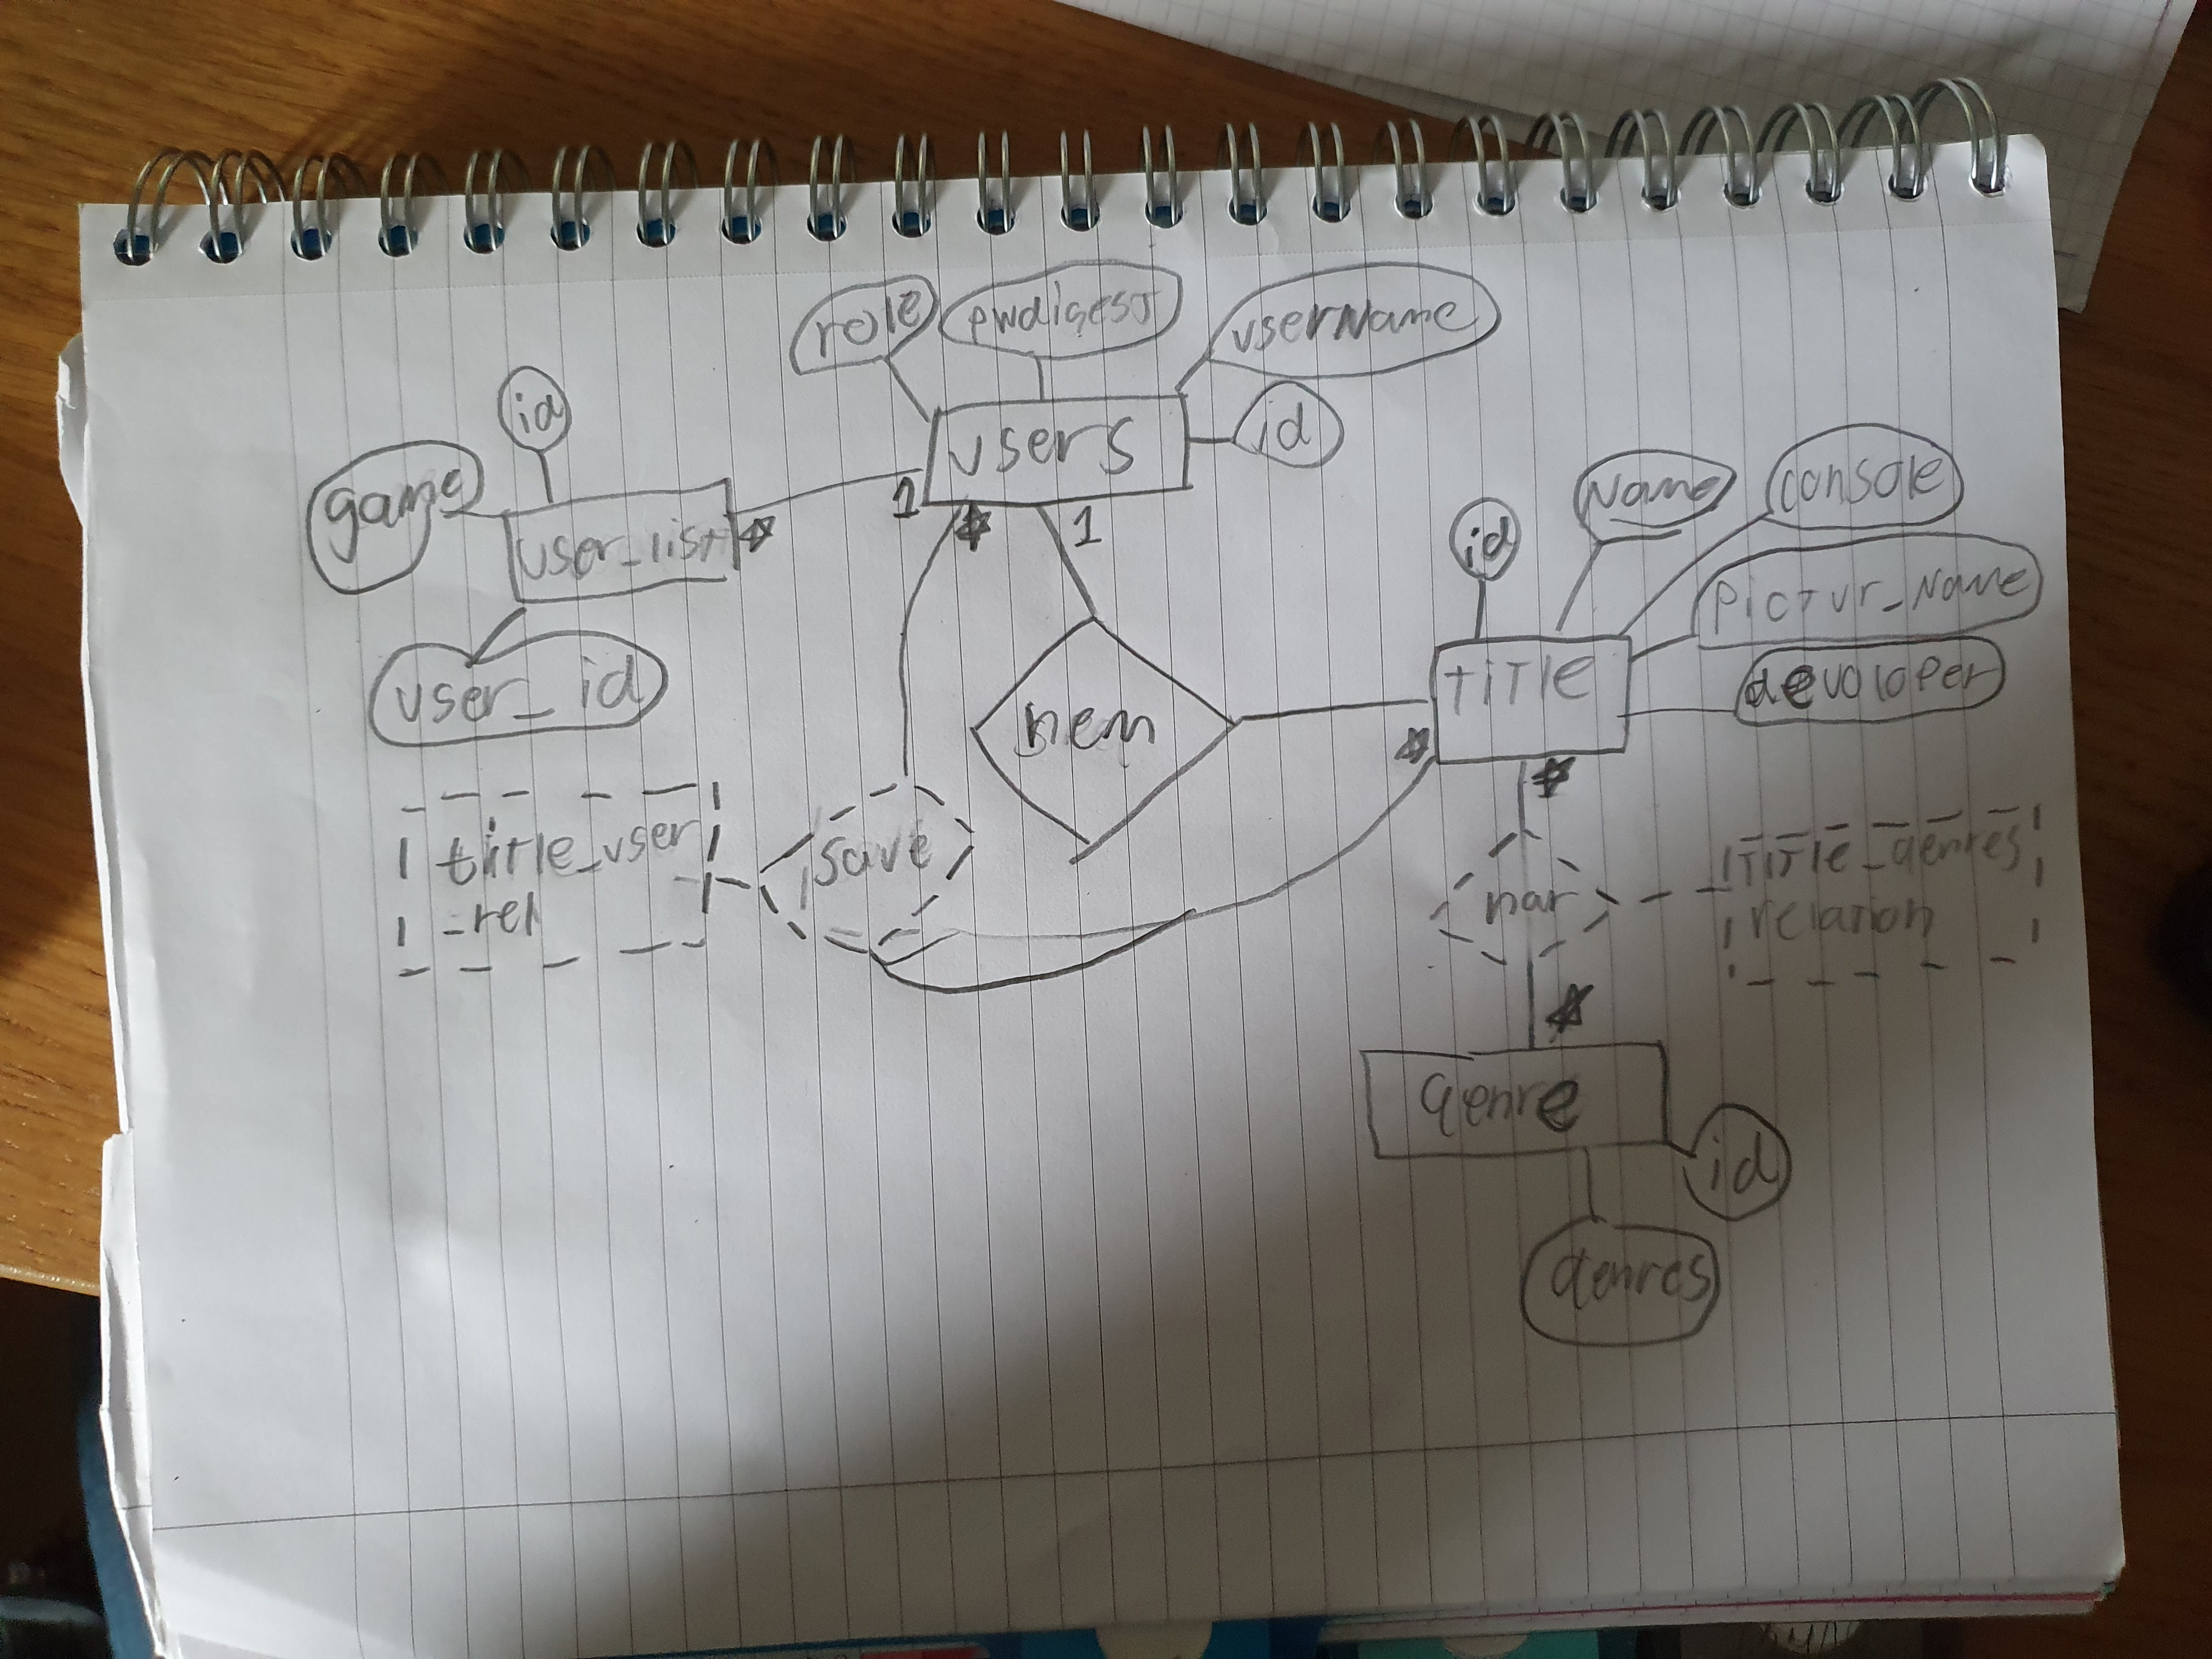 role
pwdigest
userName
id
users
id
game
user_list
user_id
1
*
*
1
id
Name
console
pictur_Name
devoloper
TiTle
*
*
save
title_user
-rel
nar
TiTle_genres
relation
*
genre
id
genres